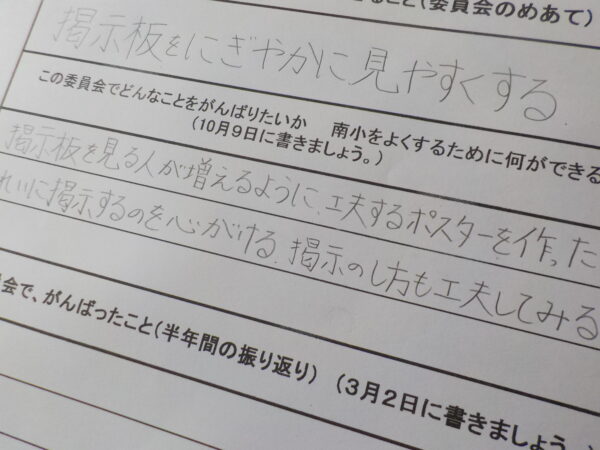 こと(委員会のめあて)
掲示板をにぎやかに見やすくする
この委員会でどんなことをがんばりたいか　南小をよくするために何ができる
(10月9日に書きましょう。)
掲示板を見る人が増えるように、工夫するポスターを作った
れいに掲示するのを心がける。掲示のし方も工夫してみる
会で、がんばったこと(半年間の振り返り)　(3月2日に書きましょう。)